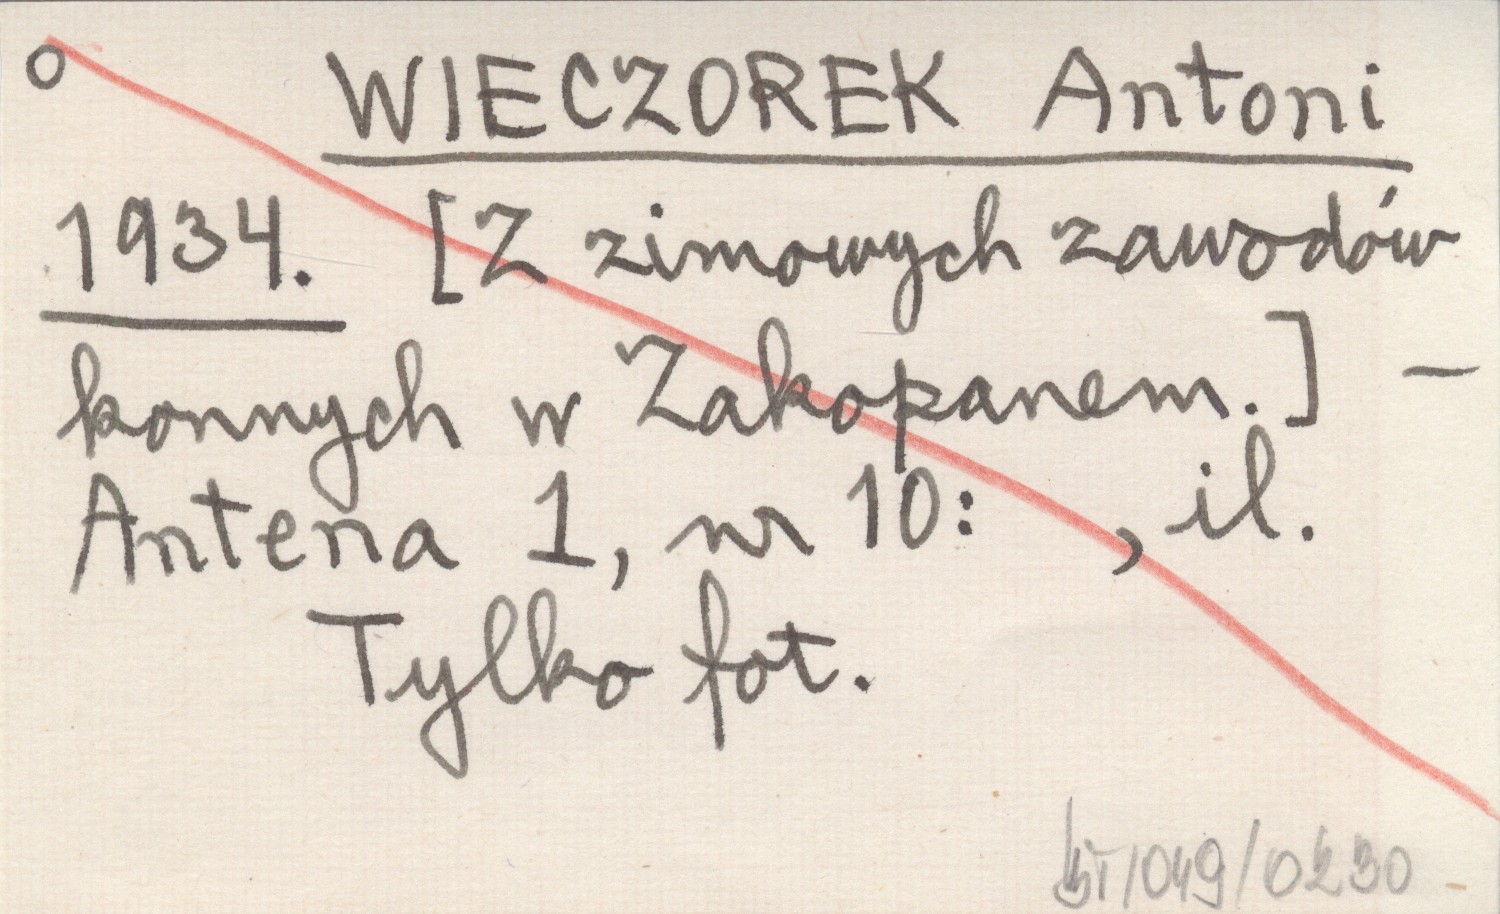 WIECZOREK Antoni
1934. [Z zimowych zawodów
konnych w Zakopanem.] –
Antena 1, nr 10: , il.
Tylko fot.